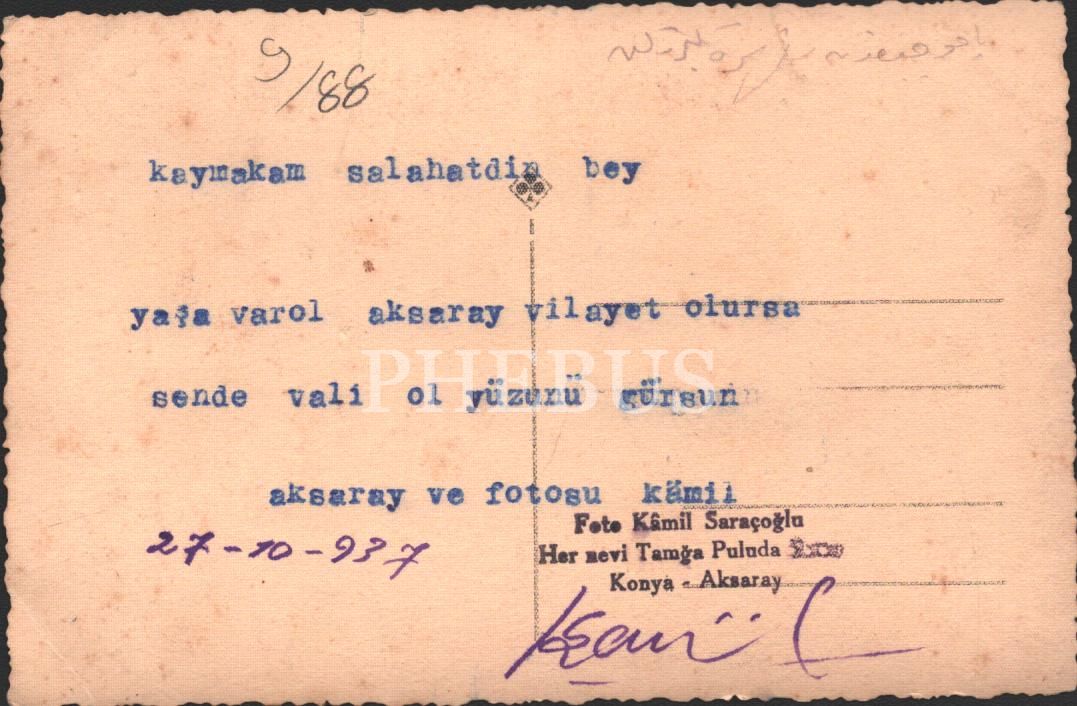 9/88
kaymakam salahatdin bey
yaşa varol aksaray vilayet olursa
sende vali ol yüzünü gürsun
PHEBUS
aksaray ve fotosu kämil
27-10-937
Foto Kâmil Saraçoğlu
Her nevi Tamğa Puluda
Konya - Aksaray